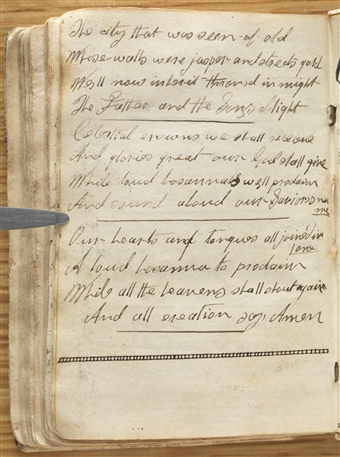 The city that was seen of old
Whose walls were jasper and streets gold
We'll now inherit thron'd in might
The Father and the Son's delight
Celestial crowns we shall receive
And glories great our God shall give
While loud hosannas we'll proclaim
And sound aloud our Saviors name
Our hearts and tongues all joined in
one
A loud hosanna to proclaim
While all the heavens shall shout again
And all creation say, Amen